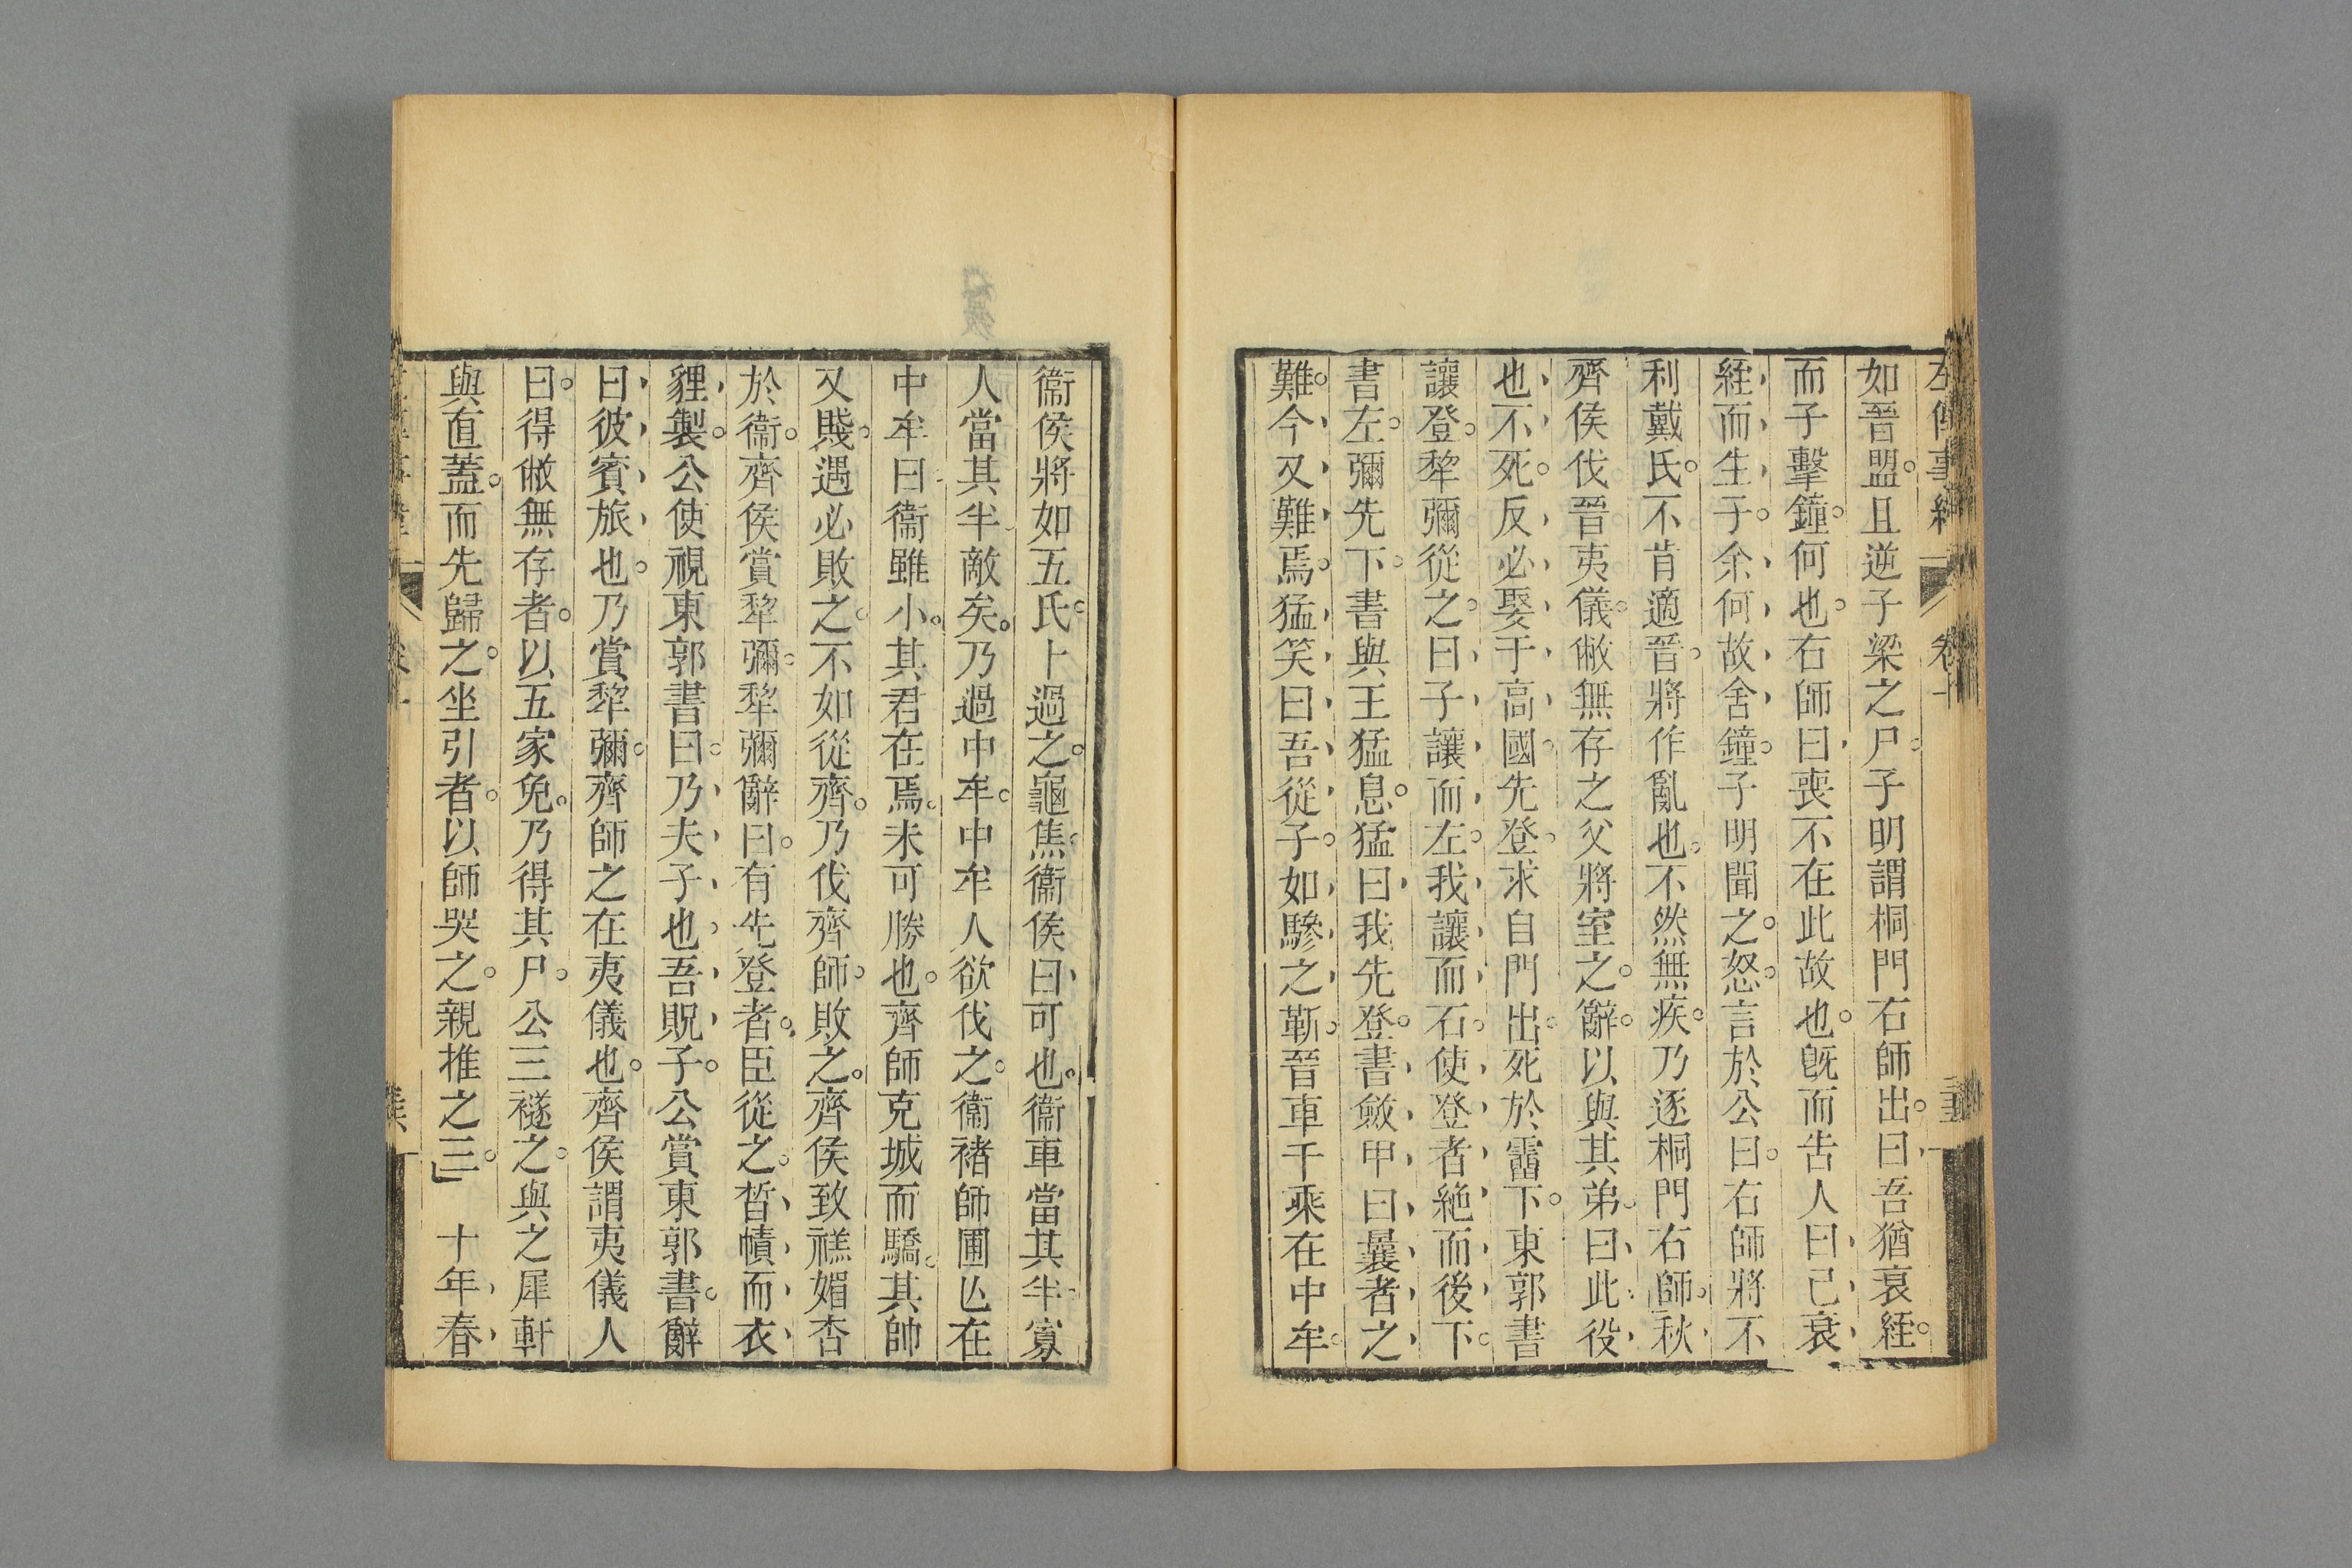 如晉盟且逆子梁之尸子明謂桐門右師出曰吾猶衰絰
而子擊鐘何也右師曰喪不在此故也旣而告人曰己衰
絰而生子余何故舍鐘子明聞之怒言於公曰右師將不
利戴氏不肯適晉將作亂也不然無疾乃逐桐門右師秋
齊侯伐晉夷儀敝無存之父將室之辭以與其弟曰此役
也不死反必娶于高國先登求自門出死於霤下東郭書
讓登犂彌從之曰子讓而左我讓而右使登者絶而後下
書左彌先下書與王猛息猛曰我先登書斂甲曰曩者之
難今又難焉猛笑曰吾從子如驂之靳晉車千乘在中牟
衞侯將如五氏卜過之龜焦衞侯曰可也衞車當其半寡
人當其半敵矣乃過中牟中牟人欲伐之衞褚師圃亾在
中牟曰衞雖小其君在焉未可勝也齊師克城而驕其帥
又賤遇必敗之不如從齊乃伐齊師敗之齊侯致禚媚杏
於衞齊侯賞犂彌犂彌辭曰有先登者臣從之晳幘而衣
貍製公使視東郭書曰乃夫子也吾貺子公賞東郭書辭
曰彼賓旅也乃賞犂彌齊師之在夷儀也齊侯謂夷儀人
曰得敝無存者以五家免乃得其尸公三襚之與之犀軒
與直蓋而先歸之坐引者以師哭之親推之三」 十年春